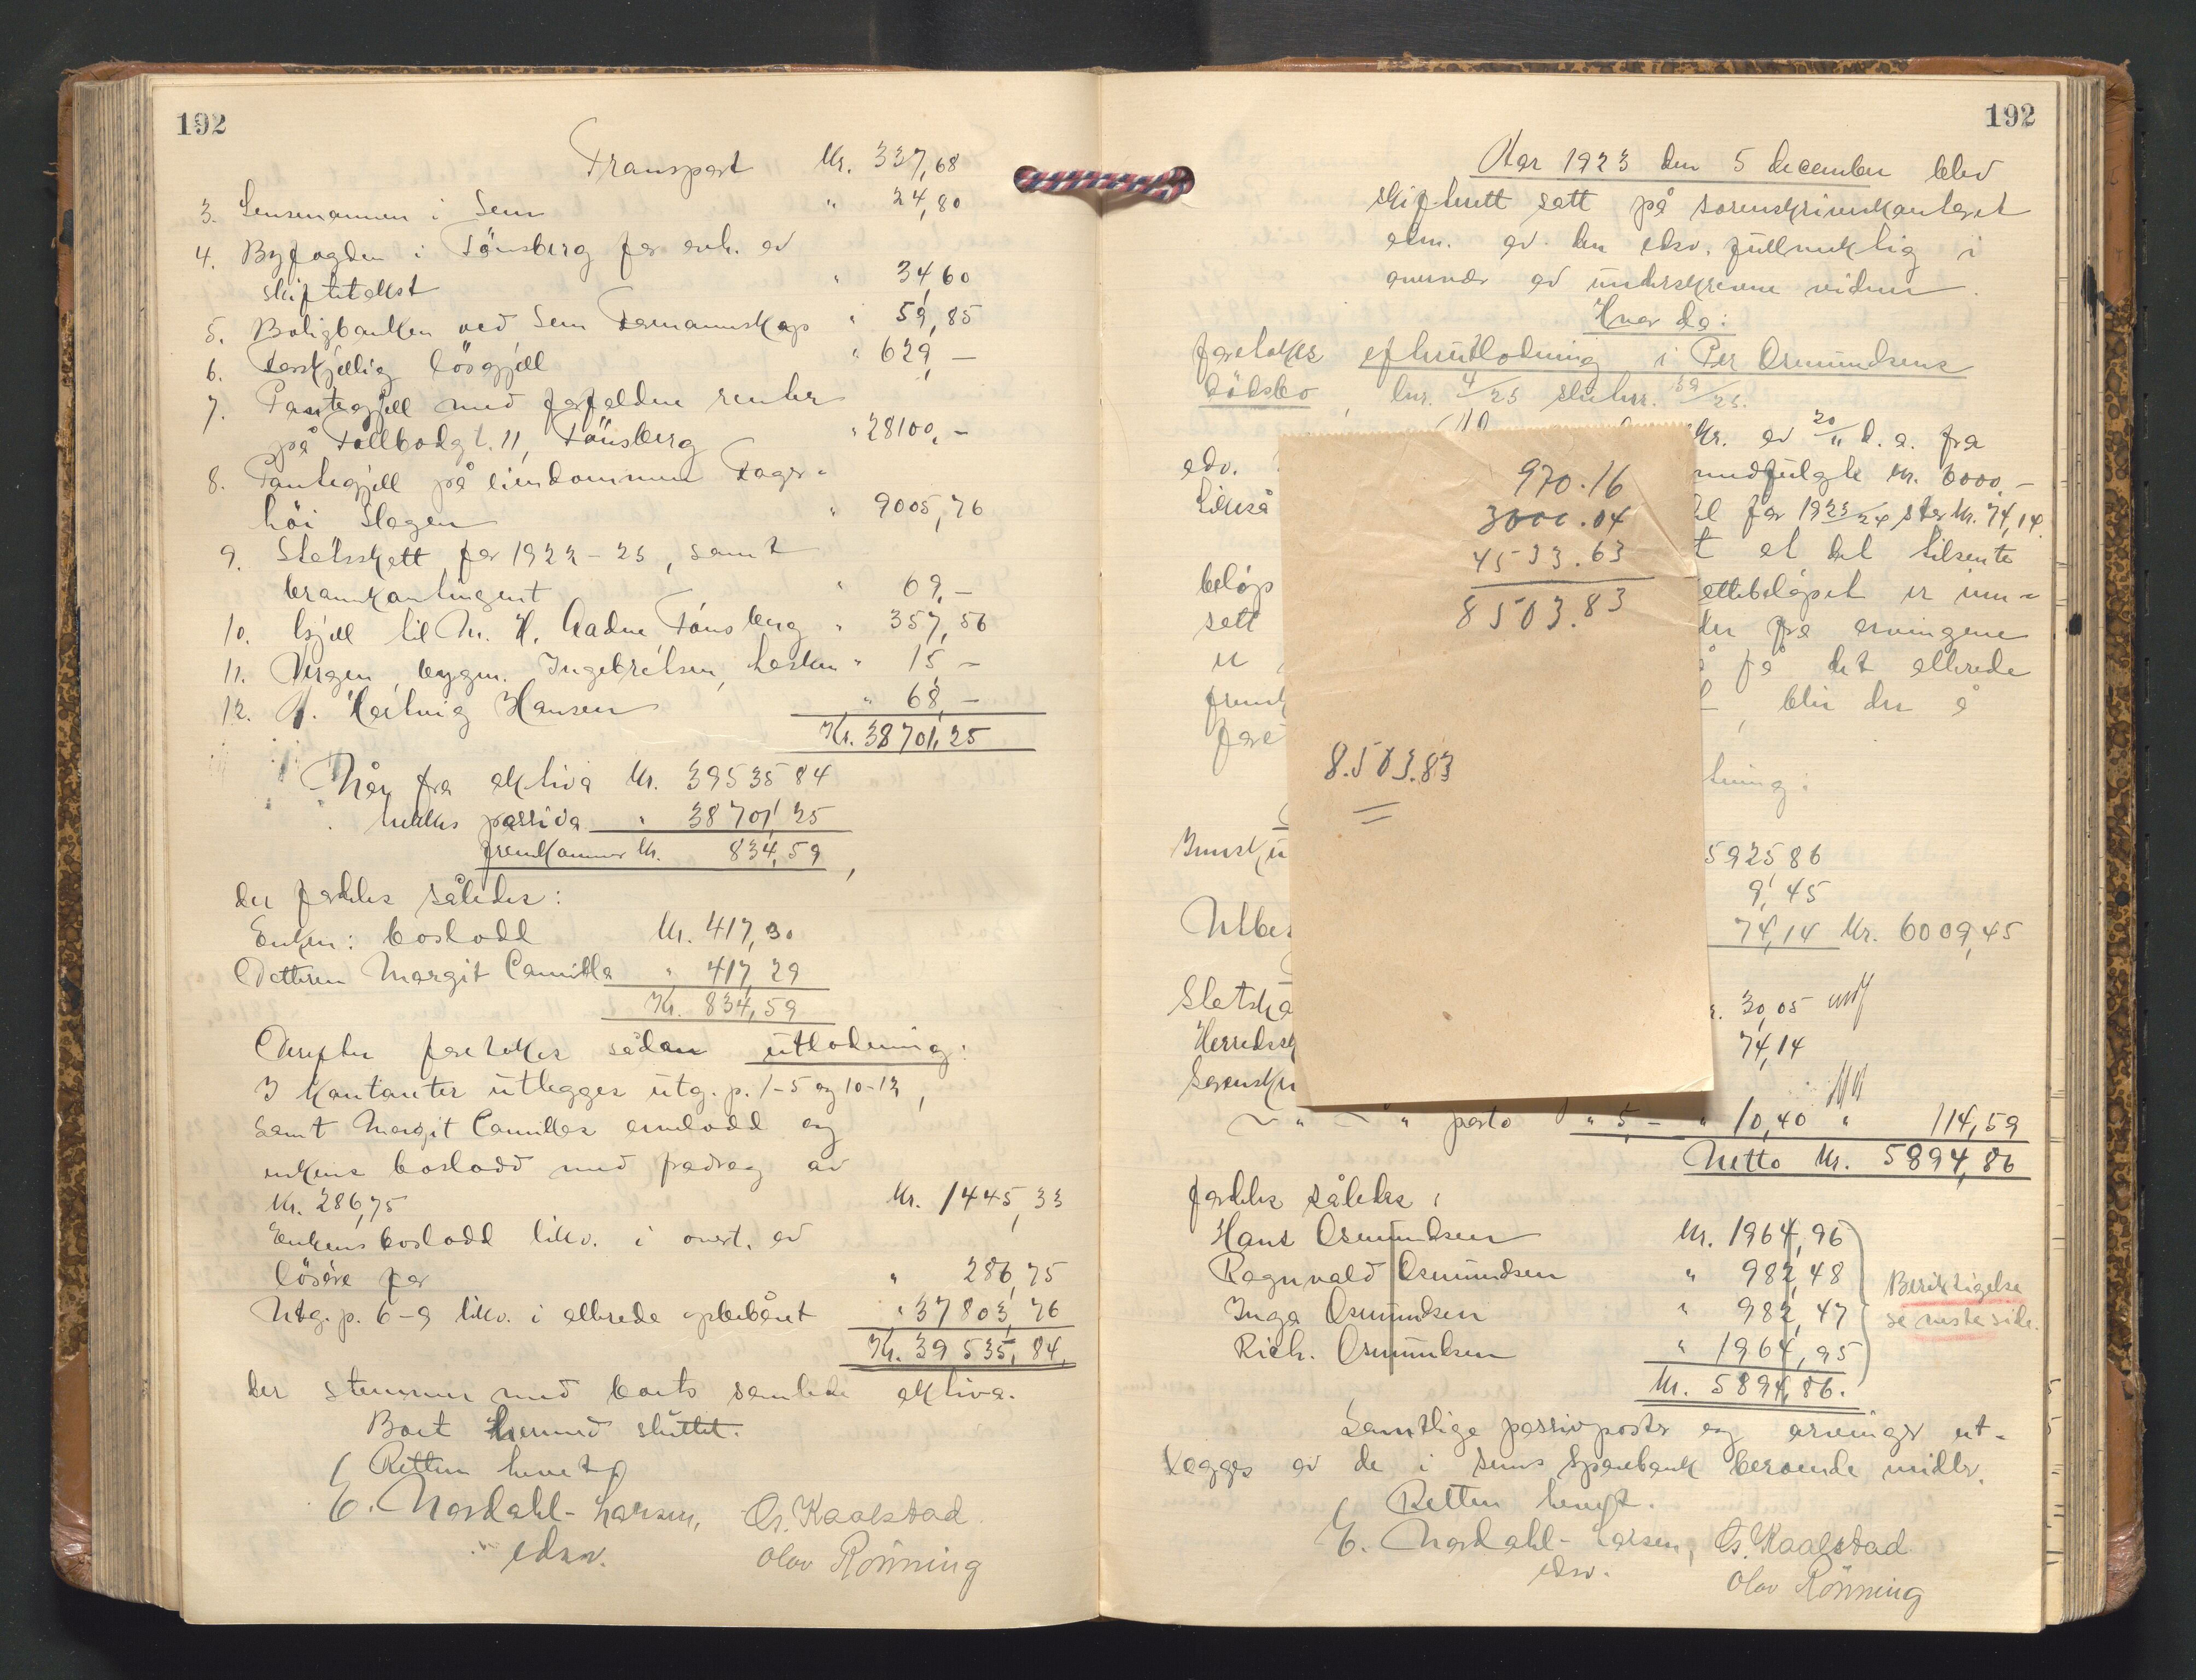 192
Transport Kr. 337,68
3. Lensmannen i Sem " 24,80
4. Byfogden i Tönsberg for avh. av
skiftetakst " 34,60
5. Boligbanken ved Sem Formannskap " 59,85
6. Forskjellig lösgjell " 629,-
7. Pantegjell med forfaldne renter
på Tollbodgt. 11, Tönsberg " 28100,-
8. Pantegjell på eiendommen Fager-
höi Slagen " 9005,76
9. Statsskatt for 1922-23, samt
brannkontingent " 69,-
10. Gjell til M. H. Aadne Tönsberg " 357,56
11. Vergen, bygm. Ingebretsen, hesten " 15 -
12. Hedvig Hansen " 68,-
Kr. 38701,25
Når fra aktiva Kr. 39535 84
trekkes passiva " 38701,25
fremkommer Kr. 834,59,
der fordeles således:
Enken: boslodd Kr. 417,30
Datteren Margit Camilla " 417,29
Kr. 834,59
Derefter foretokes sådan utlodning:
I kontanter utlegges utg. p. 1-5 og 10-12,
samt Margit Camillas arvelodd og
enkens boslodd med fradrag av
Kr. 286,75 Kr. 1445,33
Enkens boslodd likv. i overt. av
lösöre for " 286,75
Utg. p. 6-9 likv. i allerede opbebåret " 37803,76
Kr. 39535,84
der stemmer med boets samlede aktiva.
Boet hermed sluttet.
Retten hevet
E. Nordahl-Larsen, O. Kaalstad
edsv. Olav Rönning
192
Aar 1923 den 5 december blev
skifterett satt på sorenskriverkontoret
adm. av den edsv. fullmektig i
overvær av underskrevne vidner.
Hvor da:
foretokes efterutlodning i Per Osmundsens
dödsbo, lnr. 4/23 slutn. 59/23.
Kr. av 20/11 d. a. fra
adv. medfulgte kr. 6000,-
Likeså for 1923/24 stor kr. 74,14.
at det tilsente
belöp skattebelöpet er inn-
satt fra arvingene
er få det allerede
blir der å
fore
970.16
3000.04
4533.63
8503.83
8.503.83
Innsk 592586
9,45
Utbet 74,14 Kr. 6009,45
Statska 30,05
Herredssk 74,14
Sorenskr
" " porto " 5,- " 10,40 " 114,59
Netto Kr. 5894,86
fordeles således:
Hans Osmundsen Kr. 1964,96
Ragnvald Osmundsen " 982,48
Inga Osmundsen " 982,47
Rich. Osmundsen " 1964,95
Kr. 5894,86.
Beriktigelse
se neste side.
Samtlige passivposter og arvinger ut-
legges av de i Sems Sparebank beroende midler.
Retten hevet.
E. Nordahl-Larsen, O. Kaalstad
edsv. Olav Rönning